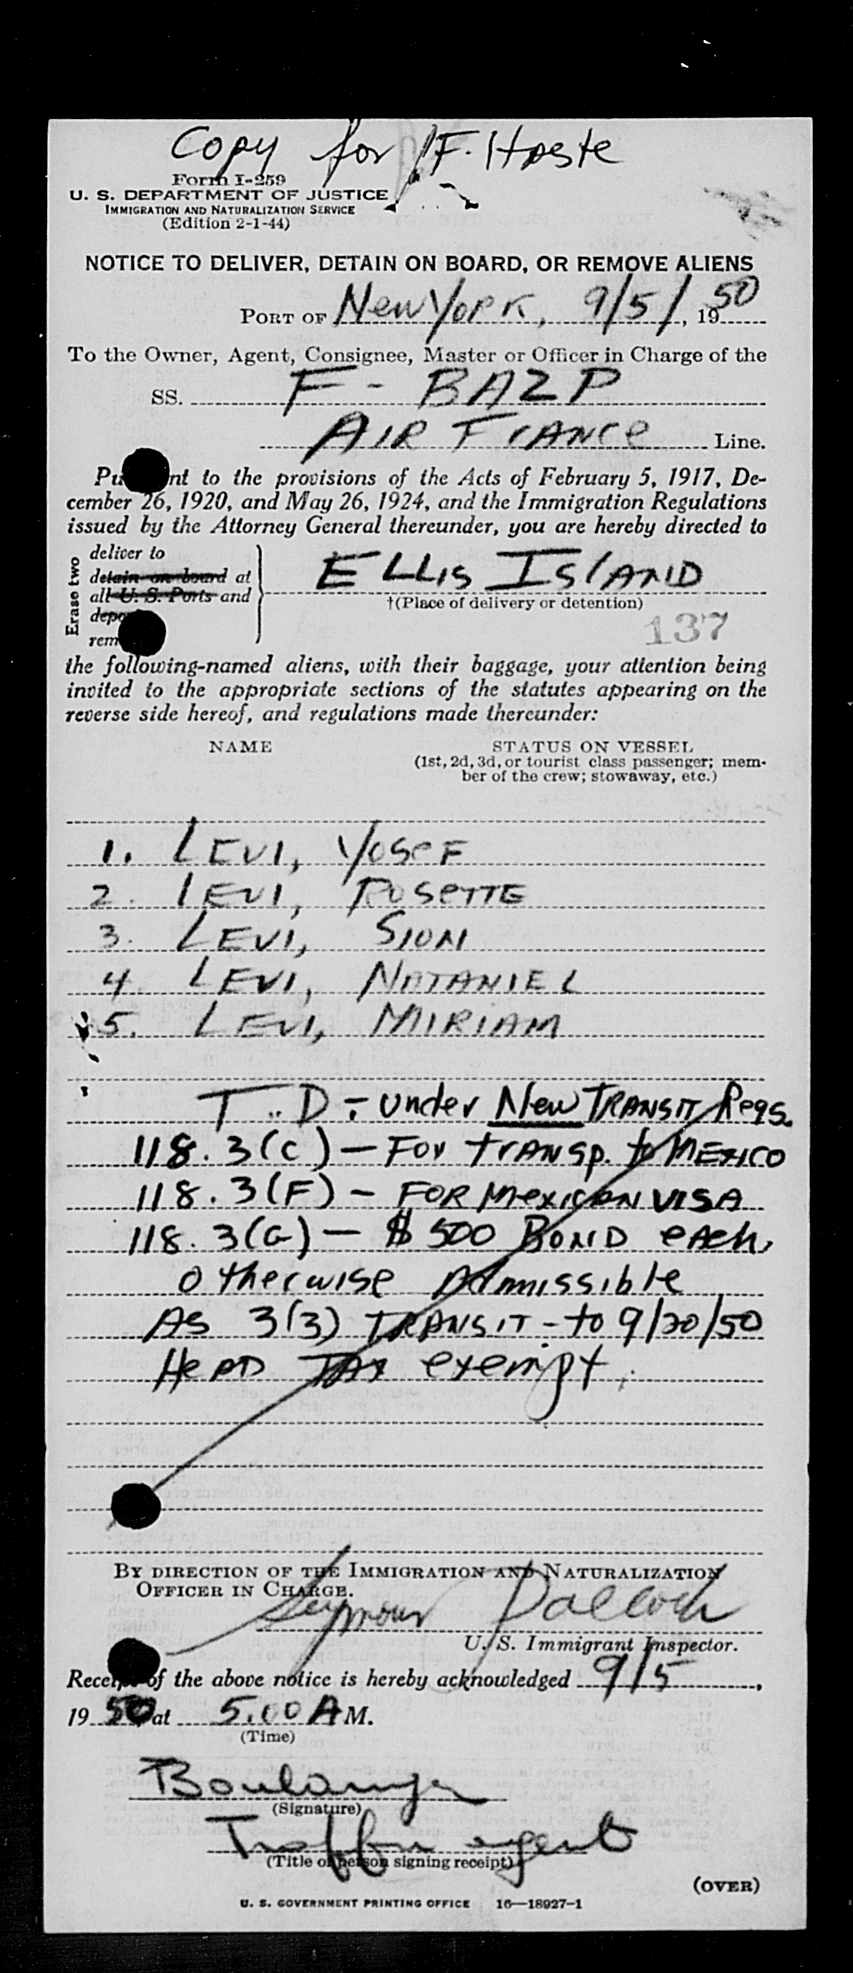 Copy for F. Haste
Form I-259
U. S. DEPARTMENT OF JUSTICE
IMMIGRATION AND NATURALIZATION SERVICE
(Edition 2-1-44)
NOTICE TO DELIVER, DETAIN ON BOARD, OR REMOVE ALIENS
PORT OF New York, 9/5/, 1950
To the Owner, Agent, Consignee, Master or Officer in Charge of the
SS. F - BAZP
AIR France Line.
Pu nt to the provisions of the Acts of February 5, 1917, De-
cember 26, 1920, and May 26, 1924, and the Immigration Regulations
issued by the Attorney General thereunder, you are hereby directed to
Erase two
deliver to
detain on board at
all U. S. Ports and
depo
rem
ELLIS ISLAND
†(Place of delivery or detention)
137
the following-named aliens, with their baggage, your attention being
invited to the appropriate sections of the statutes appearing on the
reverse side hereof, and regulations made thereunder:
NAME
STATUS ON VESSEL
(1st, 2d, 3d, or tourist class passenger; mem-
ber of the crew; stowaway, etc.)
1. LEVI, YOSEF
2. LEVI, ROSETTE
3. LEVI, SION
4. LEVI, NATANIEL
5. LEVI, MIRIAM
T.D. - under New TRANSIT Regs.
118.3(C) - For transp. to MEXICO
118.3(F) - FOR Mexican VISA
118.3(G) - $500 BOND each,
otherwise Admissible
AS 3(3) TRANSIT - to 9/20/50
HEAD TAX exempt.
BY DIRECTION OF THE IMMIGRATION AND NATURALIZATION
OFFICER IN CHARGE.
Seymour
U. S. Immigrant Inspector.
Receipt of the above notice is hereby acknowledged 9/5,
1950 at 5.00 A M.
(Time)
Boulanger
(Signature)
Traffic agent
(Title of person signing receipt)
(OVER)
U. S. GOVERNMENT PRINTING OFFICE 16—18927-1